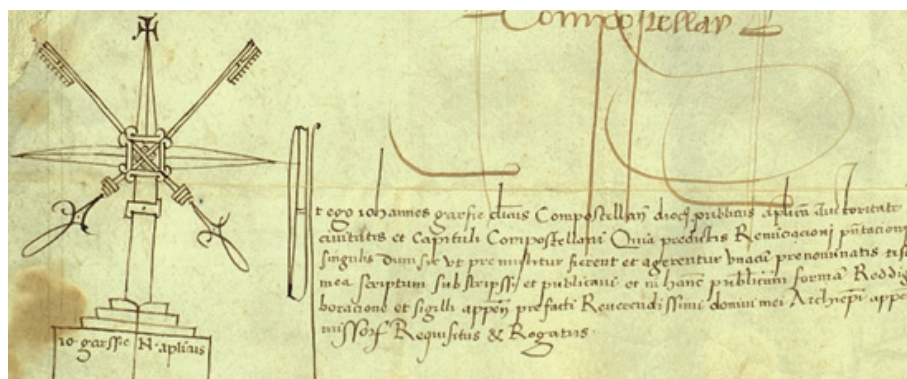 Compostellan
Et ego iohannes garsie cliicus Compostellan dioc publicus aplica auctoritate
civitatis et Capituli Compostellani Quia predictis Renuciacioni pntacioni
singulis dum sic ut premittitur fierent et agerentur vnacu prenominatis
mea scriptum subscripssi et publicavi et in hanc publicum forma Reddig
boracione et sigilli appen prefacti Reverendissimi domini mei Archiepi appen
Requisitus & Rogatus
io garssie N aplicus